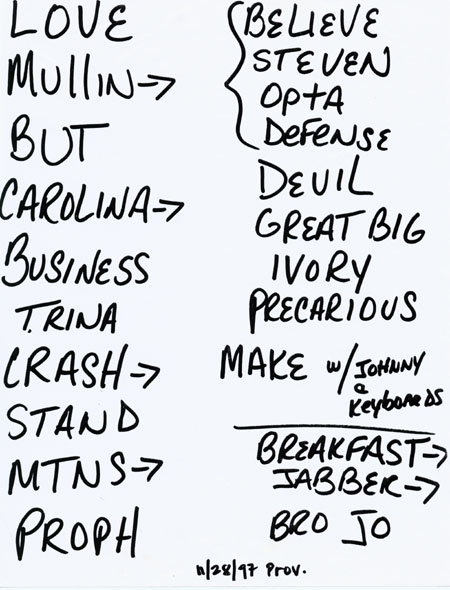 LOVE
MULLIN→
BUT
CAROLINA→
BUSINESS
T.RINA
CRASH→
STAND
MTNS→
PROPH
BELIEVE
STEVEN
OPTA
DEFENSE
DEVIL
GREAT BIG
IVORY
PRECARIOUS
MAKE w/ JOHNNY
@
KEYBOARDS
BREAKFAST→
JABBER→
BRO JO
11/28/97 Prov.